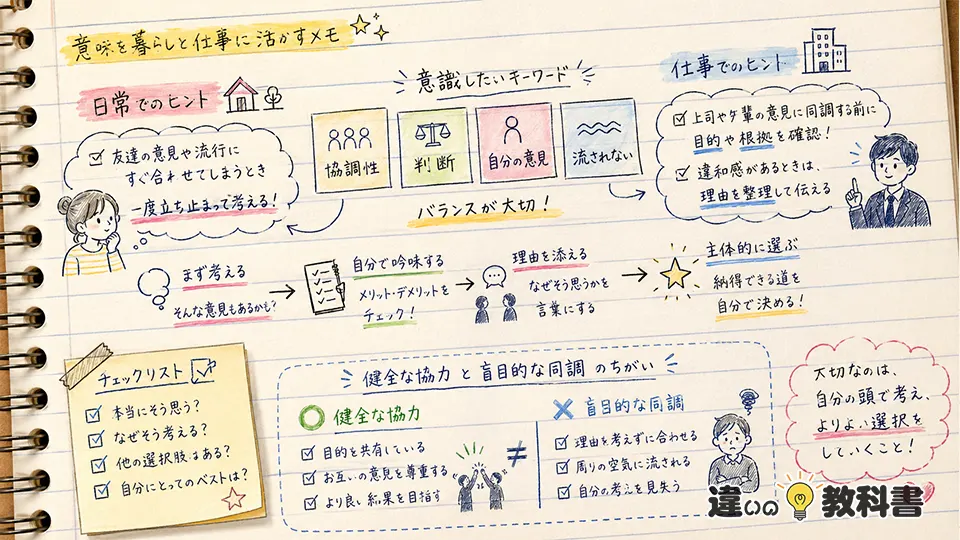 意味を暮らしと仕事に活かすメモ
日常でのヒント
友達の意見や流行に
すぐ合わせてしまうとき
一度立ち止まって考える!
意識したいキーワード
協調性
判断
自分の意見
流されない
バランスが大切!
仕事でのヒント
上司や
の意見に同調する前に
目的や根拠を確認!
違和感があるときは、
理由を整理して伝える
まず考える
そんな意見もあるかも?
自分で吟味する
メリット・デメリットを
チェック!
理由を添える
なぜそう思うかを
言葉にする
主体的に選ぶ
納得できる道を
自分で決める!
チェックリスト
本当にそう思う?
なぜそう考える?
他の選択肢はある?
自分にとってのベストは?
健全な協力と盲目的な同調のちがい
健全な協力
目的を共有している
お互いの意見を尊重する
より良い結果を目指す
≠
盲目的な同調
理由を考えずに合わせる
周りの空気に流される
自分の考えを見失う
大切なのは、
自分の頭で考え、
よりよい選択を
していくこと!
違いの教科書